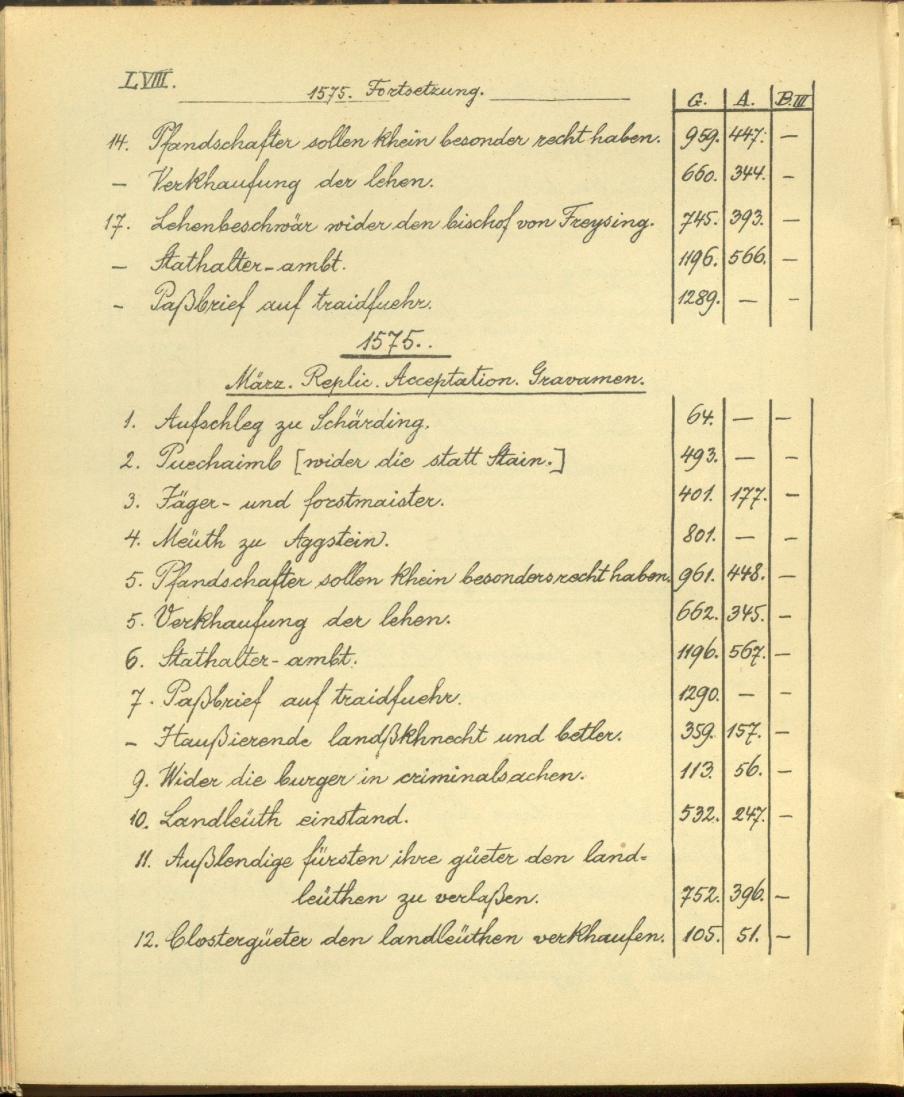 LVIII.
1575. Fortsetzung.
G. A. B.III
14. Pfandschafter sollen khein besonder recht haben. 959. 447. —
— Verkhaufung der lehen. 660. 344. —
17. Lehenbeschwär wider den bischof von Freysing. 745. 393. —
— Stathalter-ambt. 1196. 566. —
— Paßbrief auf traidfuehr. 1289. — —
1575..
März. Replic. Acceptation. Gravamen.
1. Aufschleg zu Schärding. 64. — —
2. Puechaimb [wider die statt Stain.] 493. — —
3. Jäger- und forstmaister. 401. 177. —
4. Meüth zu Aggstein. 801. — —
5. Pfandschafter sollen khein besonders recht haben. 961. 448. —
5. Verkhaufung der lehen. 662. 345. —
6. Stathalter-ambt. 1196. 567. —
7. Paßbrief auf traidfuehr. 1290. — —
— Haußierende landßkhnecht und betler. 359. 157. —
9. Wider die burger in criminalsachen. 113. 56. —
10. Landleüth einstand. 532. 247. —
11. Außlendige fürsten ihre güeter den land=
leüthen zu verlaßen. 752. 396. —
12. Clostergüeter den landleüthen verkhaufen. 105. 51. —